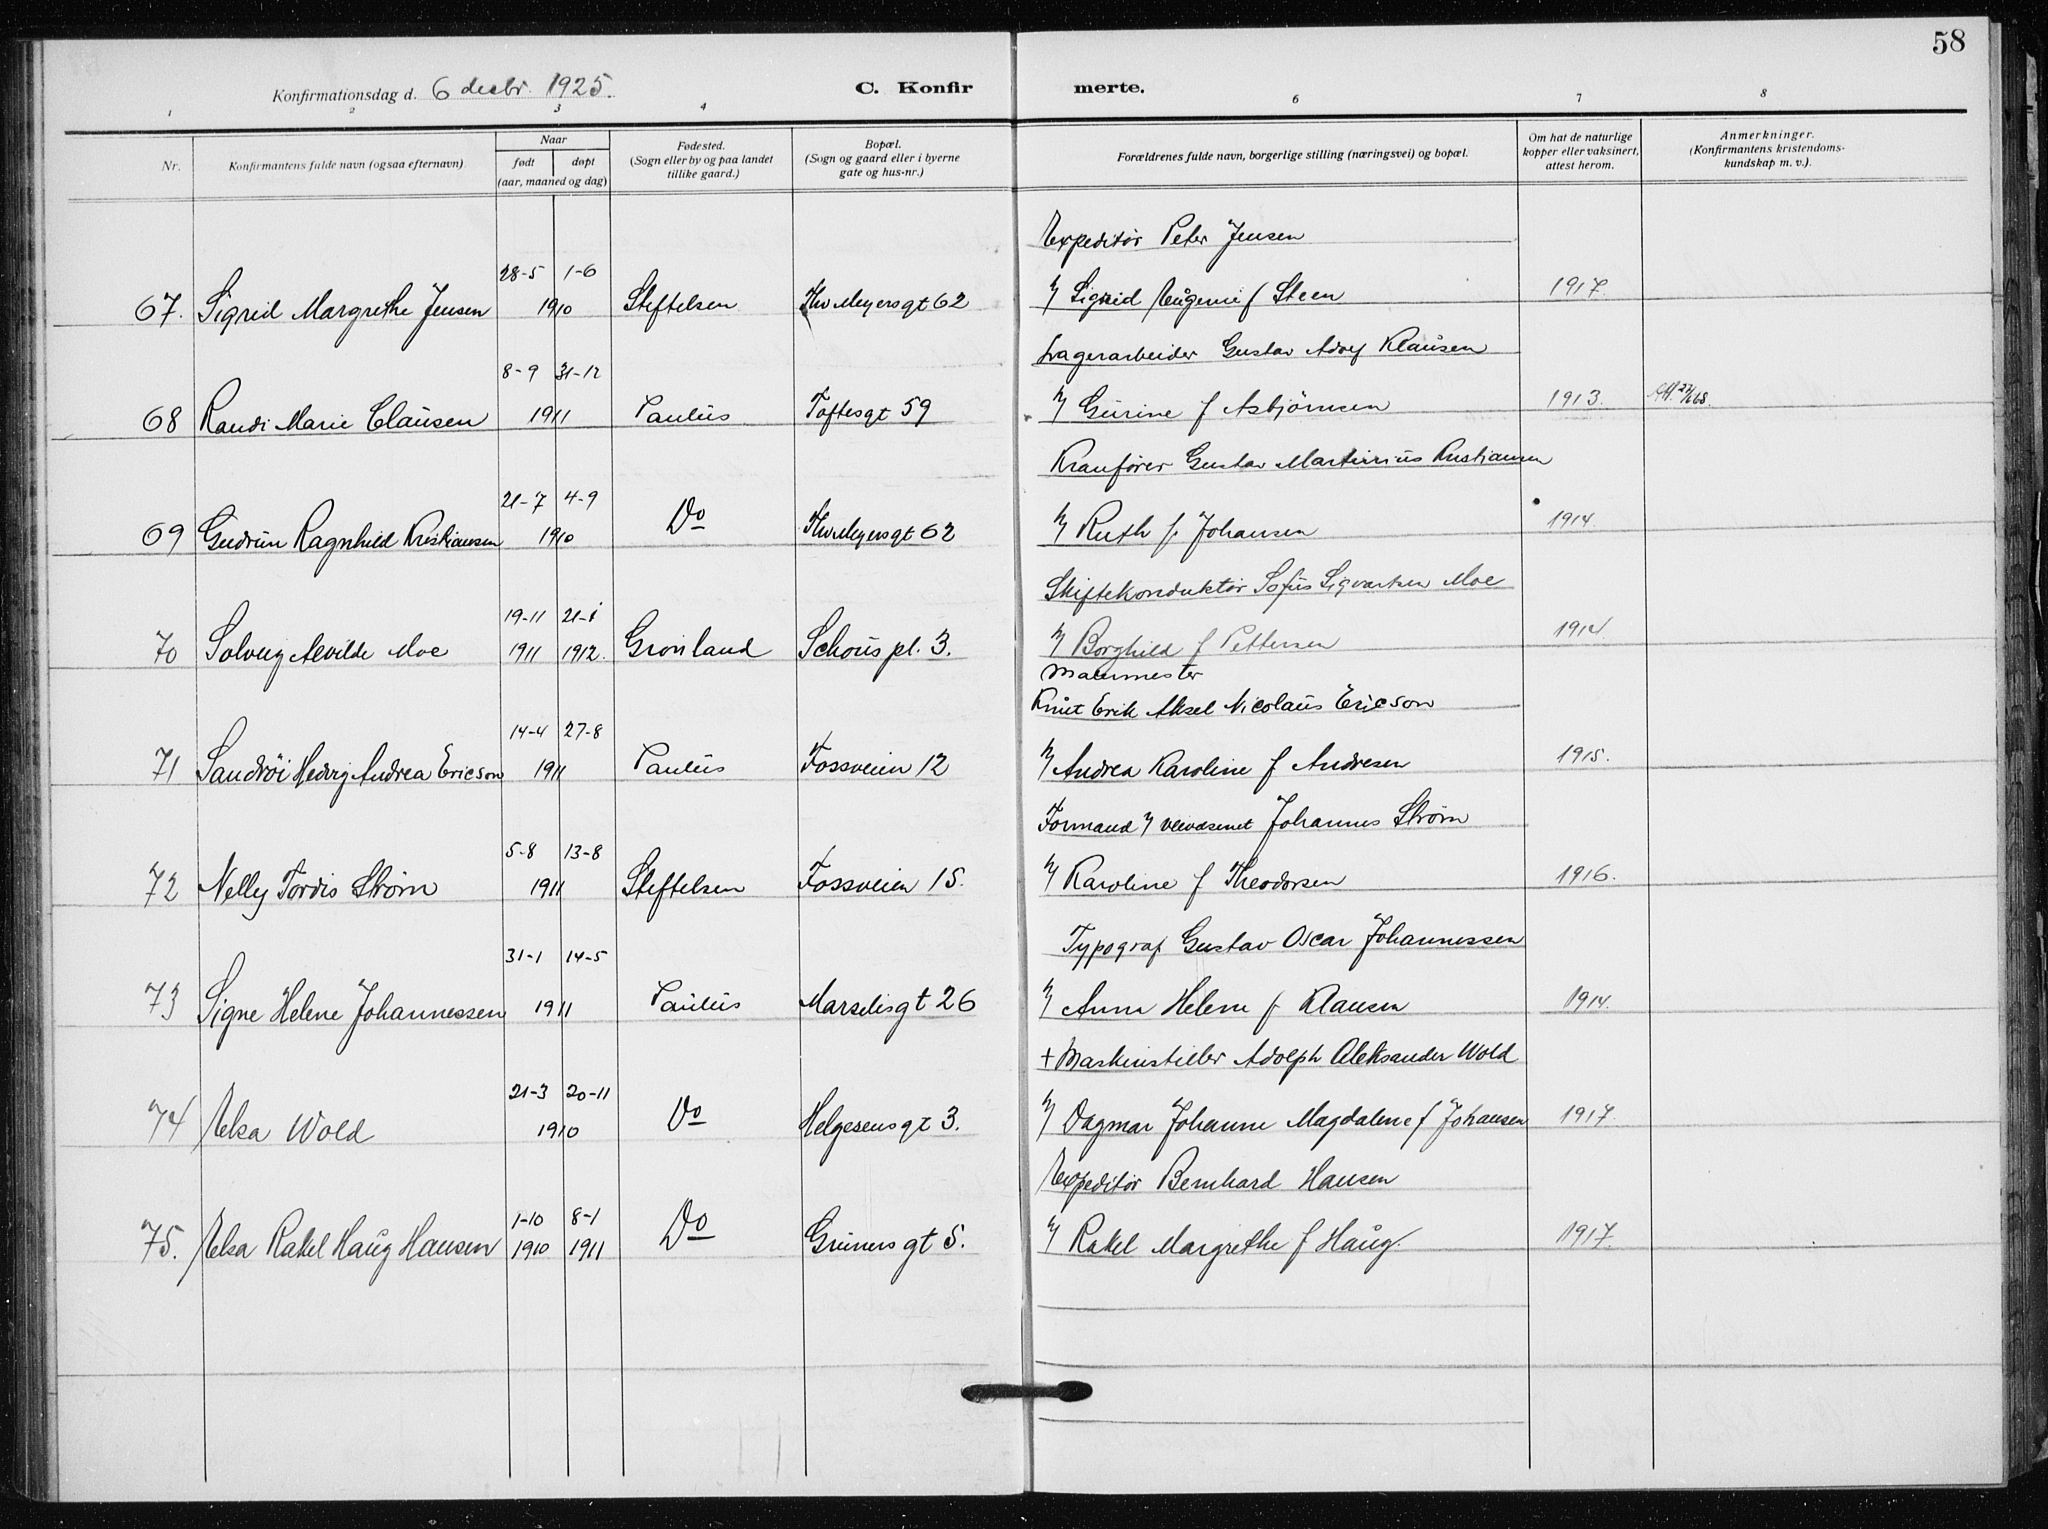 58
Konfirmationsdag d. 6 decbr. 1925.
C. Konfirmerte.
1 2 3 4 6 7 8
Nr.
Konfirmantens fulde navn (ogsaa efternavn)
Naar
født døpt
(aar, maaned og dag)
Fødested.
(Sogn eller by og paa landet
tillike gaard.)
Bopæl.
(Sogn og gaard eller i byerne
gate og hus-nr.)
Forældrenes fulde navn, borgerlige stilling (næringsvei) og bopæl.
Om hat de naturlige
kopper eller vaksinert,
attest herom.
Anmerkninger.
(Konfirmantens kristendoms-
kundskap m. v.).
Expeditør Peter Jensen
28-5 1-6
67. Sigrid Margrethe Jensen 1910 Stiftelsen Thv Meyersgt 62 Sigrid Eugenie f Steen 1917.
Lagerarbeider Gustav Adolf Klausen
8-9 31-12
68 Randi Marie Clausen 1911 Paulus Toftesgt 59 Gurine f Asbjørnsen 1913.
Kranfører Gustav Martinius Kristiansen
21-7 4-9
69 Gudrun Ragnhild Kristiansen 1910 Do Thv Meyersgt 62 Ruth f. Johansen 1914.
Skiftekonduktør Sofus Sigvartsen Moe
19-11 21-1
70 Solveig Alvilde Moe 1911 1912. Grønland Schous pl. 3. Borghild f Pettersen 1914.
Murmester
Knut Erik Aksel Nicolaus Ericson
14-4 27-8
71 Hedvig Andrea Ericson 1911 Paulus Fossveien 12 Andrea Karoline f Andresen 1915.
Formand v veivæsenet Johannes Strøm
5-8 13-8
72 Nelly Tordis Strøm 1911 Stiftelsen Fossveien 15. Karoline f Theodorsen 1916.
Typograf Gustav Oscar Johannessen
31-1 14-5
73 Signe Helene Johannessen 1911 Paulus Marselisgt 26 Anna Helene f Klausen 1914.
+ Maskinstiller Adolph Aleksander Wold
21-3 20-11
74 Elsa Wold 1910 Do Helgesensgt 3. Dagmar Johanne Magdalene f Johansen 1917.
Expeditør Bernhard Hansen
1-10 8-1
75. Elsa Rakel Haug Hansen 1910 1911 Do Grünersgt 5. Rakel Margrethe f Haug. 1917.